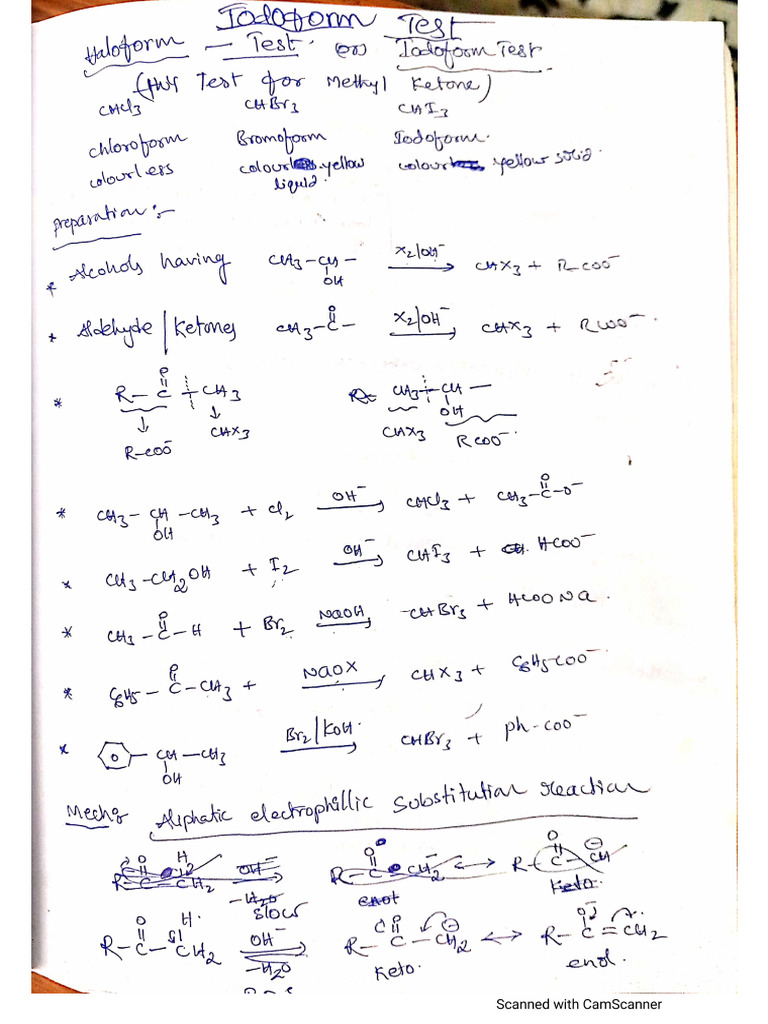 Iodoform Test
Haloform - Test (or) Iodoform Test
Test for Methyl Ketone)
CHCl3 CHBr3 CHI3
chloroform Bromoform Iodoform.
colourless colour yellow liquid. colour yellow solid.
Preparation:-
* Alcohols having CH3-CH- X2/OH⁻ → CHX3 + R-COO⁻
OH
* Aldehyde/Ketones CH3-C- X2/OH⁻ → CHX3 + RCOO⁻.
O
* R-C+CH3 CH3+CH-
O OH
R-COO⁻ CHX3 CHX3 RCOO⁻.
* CH3-CH-CH3 + Cl2 OH⁻ → CHCl3 + CH3-C-O⁻
OH O
* CH3-CH2OH + I2 OH⁻ → CHI3 + HCOO⁻
* CH3-C-H + Br2 NaOH → CHBr3 + HCOONa.
O
* C6H5-C-CH3 + NaOX → CHX3 + C6H5-COO⁻
O
* CH-CH3 Br2/KOH. → CHBr3 + ph-COO⁻
OH
Mech Aliphatic electrophillic Substitution reaction
R-C-CH2 OH⁻ → R-C-CH2 ↔ R-C=CH2
O H. -H2O O ⊖ O⁻
Keto. enol.
Scanned with CamScanner